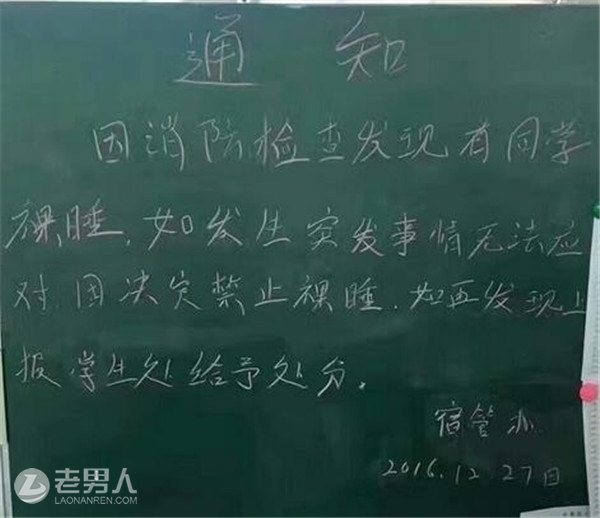 通 知
因消防检查发现有同学
裸睡，如发生突发事情无法应
对因决定禁止裸睡．如再发现上
报学生处给予处分．
宿管办
2016.12.27日
老男人
LAONANREN.COM